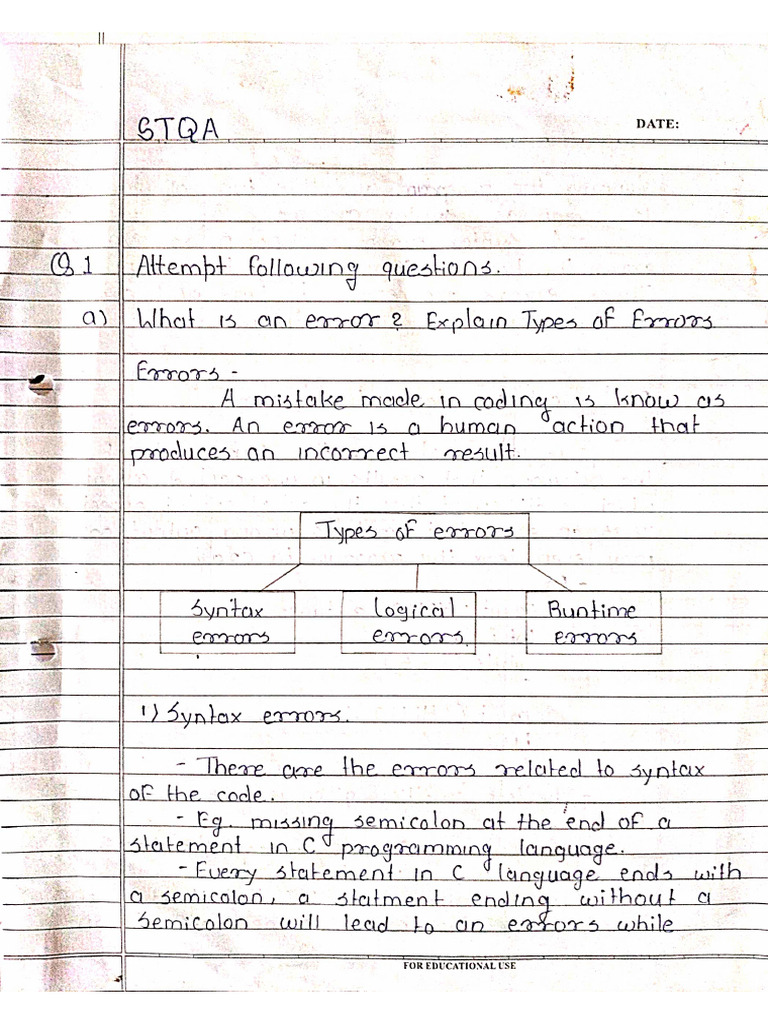 STQA
DATE:
Q.1 Attempt following questions.
a) What is an error? Explain Types of Errors
Errors -
A mistake made in coding is know as
errors. An error is a human action that
produces an incorrect result.
Types of errors
Syntax errors
Logical errors.
Runtime errors
1) Syntax errors.
- There are the errors related to syntax
of the code.
- Eg. missing semicolon at the end of a
statement in C programming language.
- Every statement in C language ends with
a semicolon, a statment ending without a
semicolon will lead to an errors while
FOR EDUCATIONAL USE